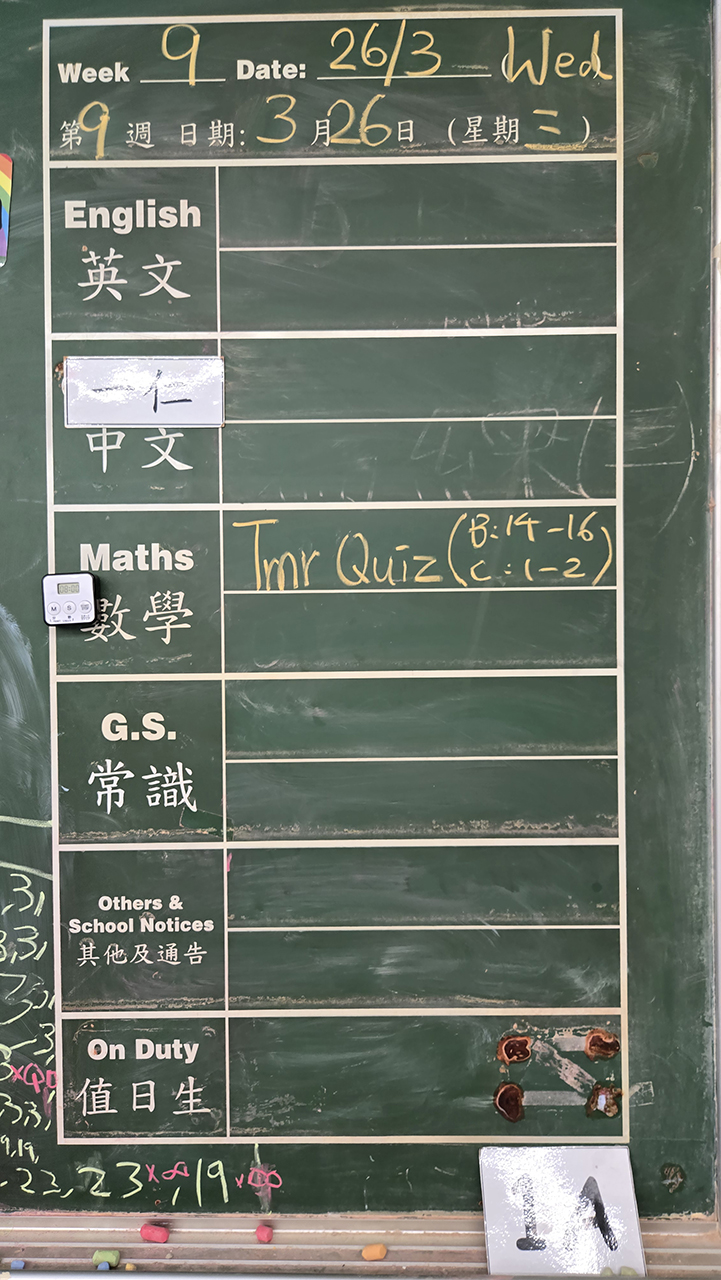 Week 9 Date: 26/3 (Wed
第9週 日期: 3月26日 (星期三)
English
英文
一仁
中文
Maths
數學
Tmr Quiz (B:14-16
C:1-2)
G.S.
常識
Others &
School Notices
其他及通告
On Duty
值日生
23×∞,19×∞
1A